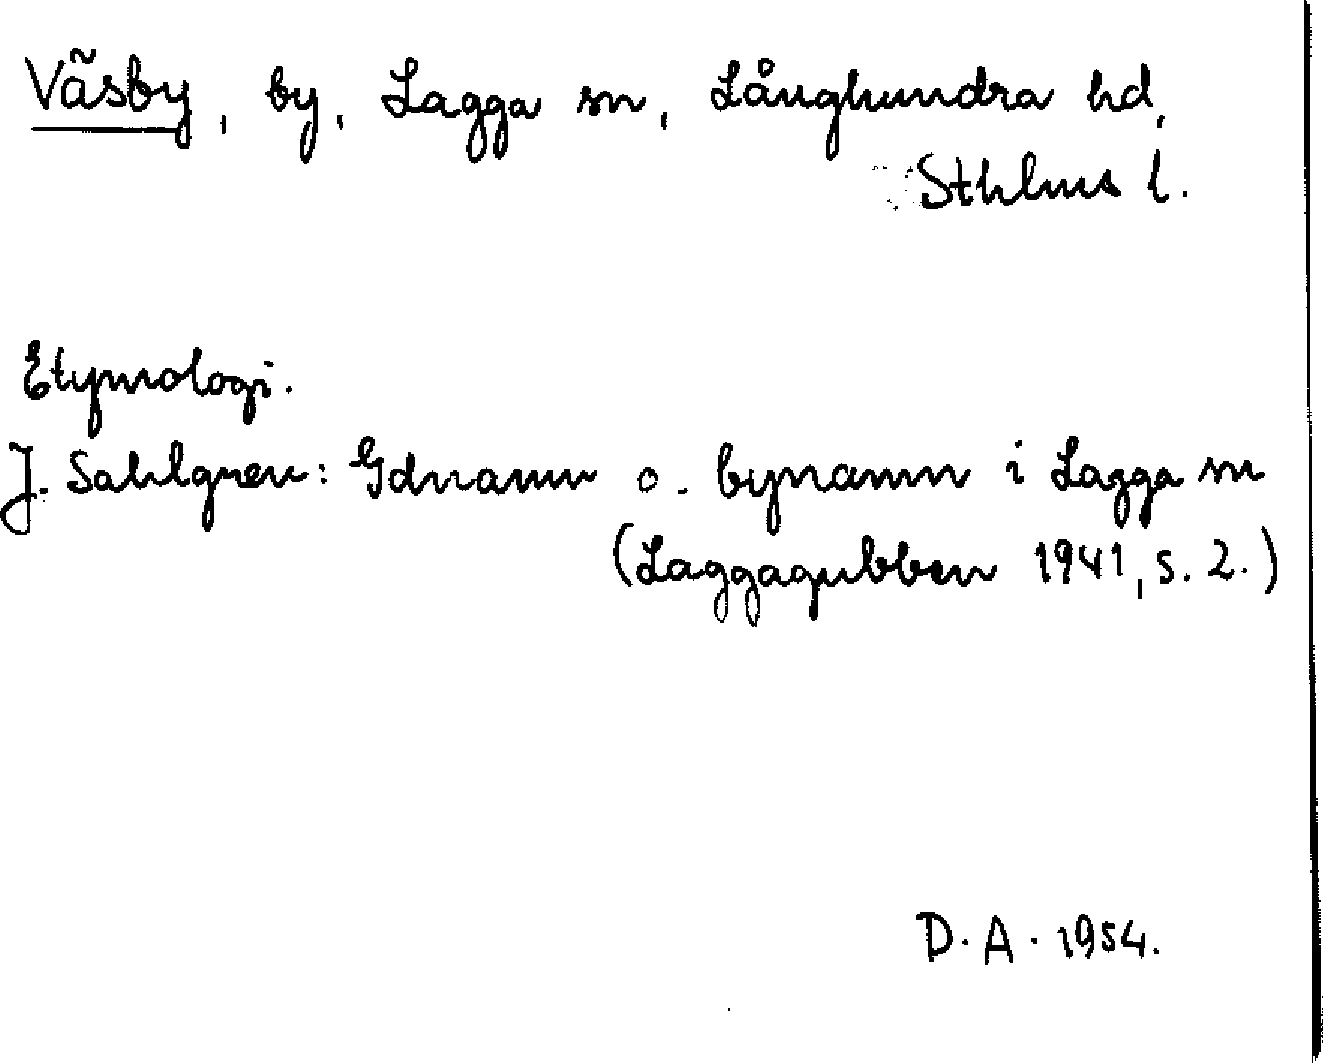 Väsby, by, Lagga sn, Långhundra hd,
Sthlms l.
Etymologi.
J. Sahlgren: Gdnamn o. bynamn i Lagga sn
(Laggagubben 1941, s. 2.)
D. A. 1954.